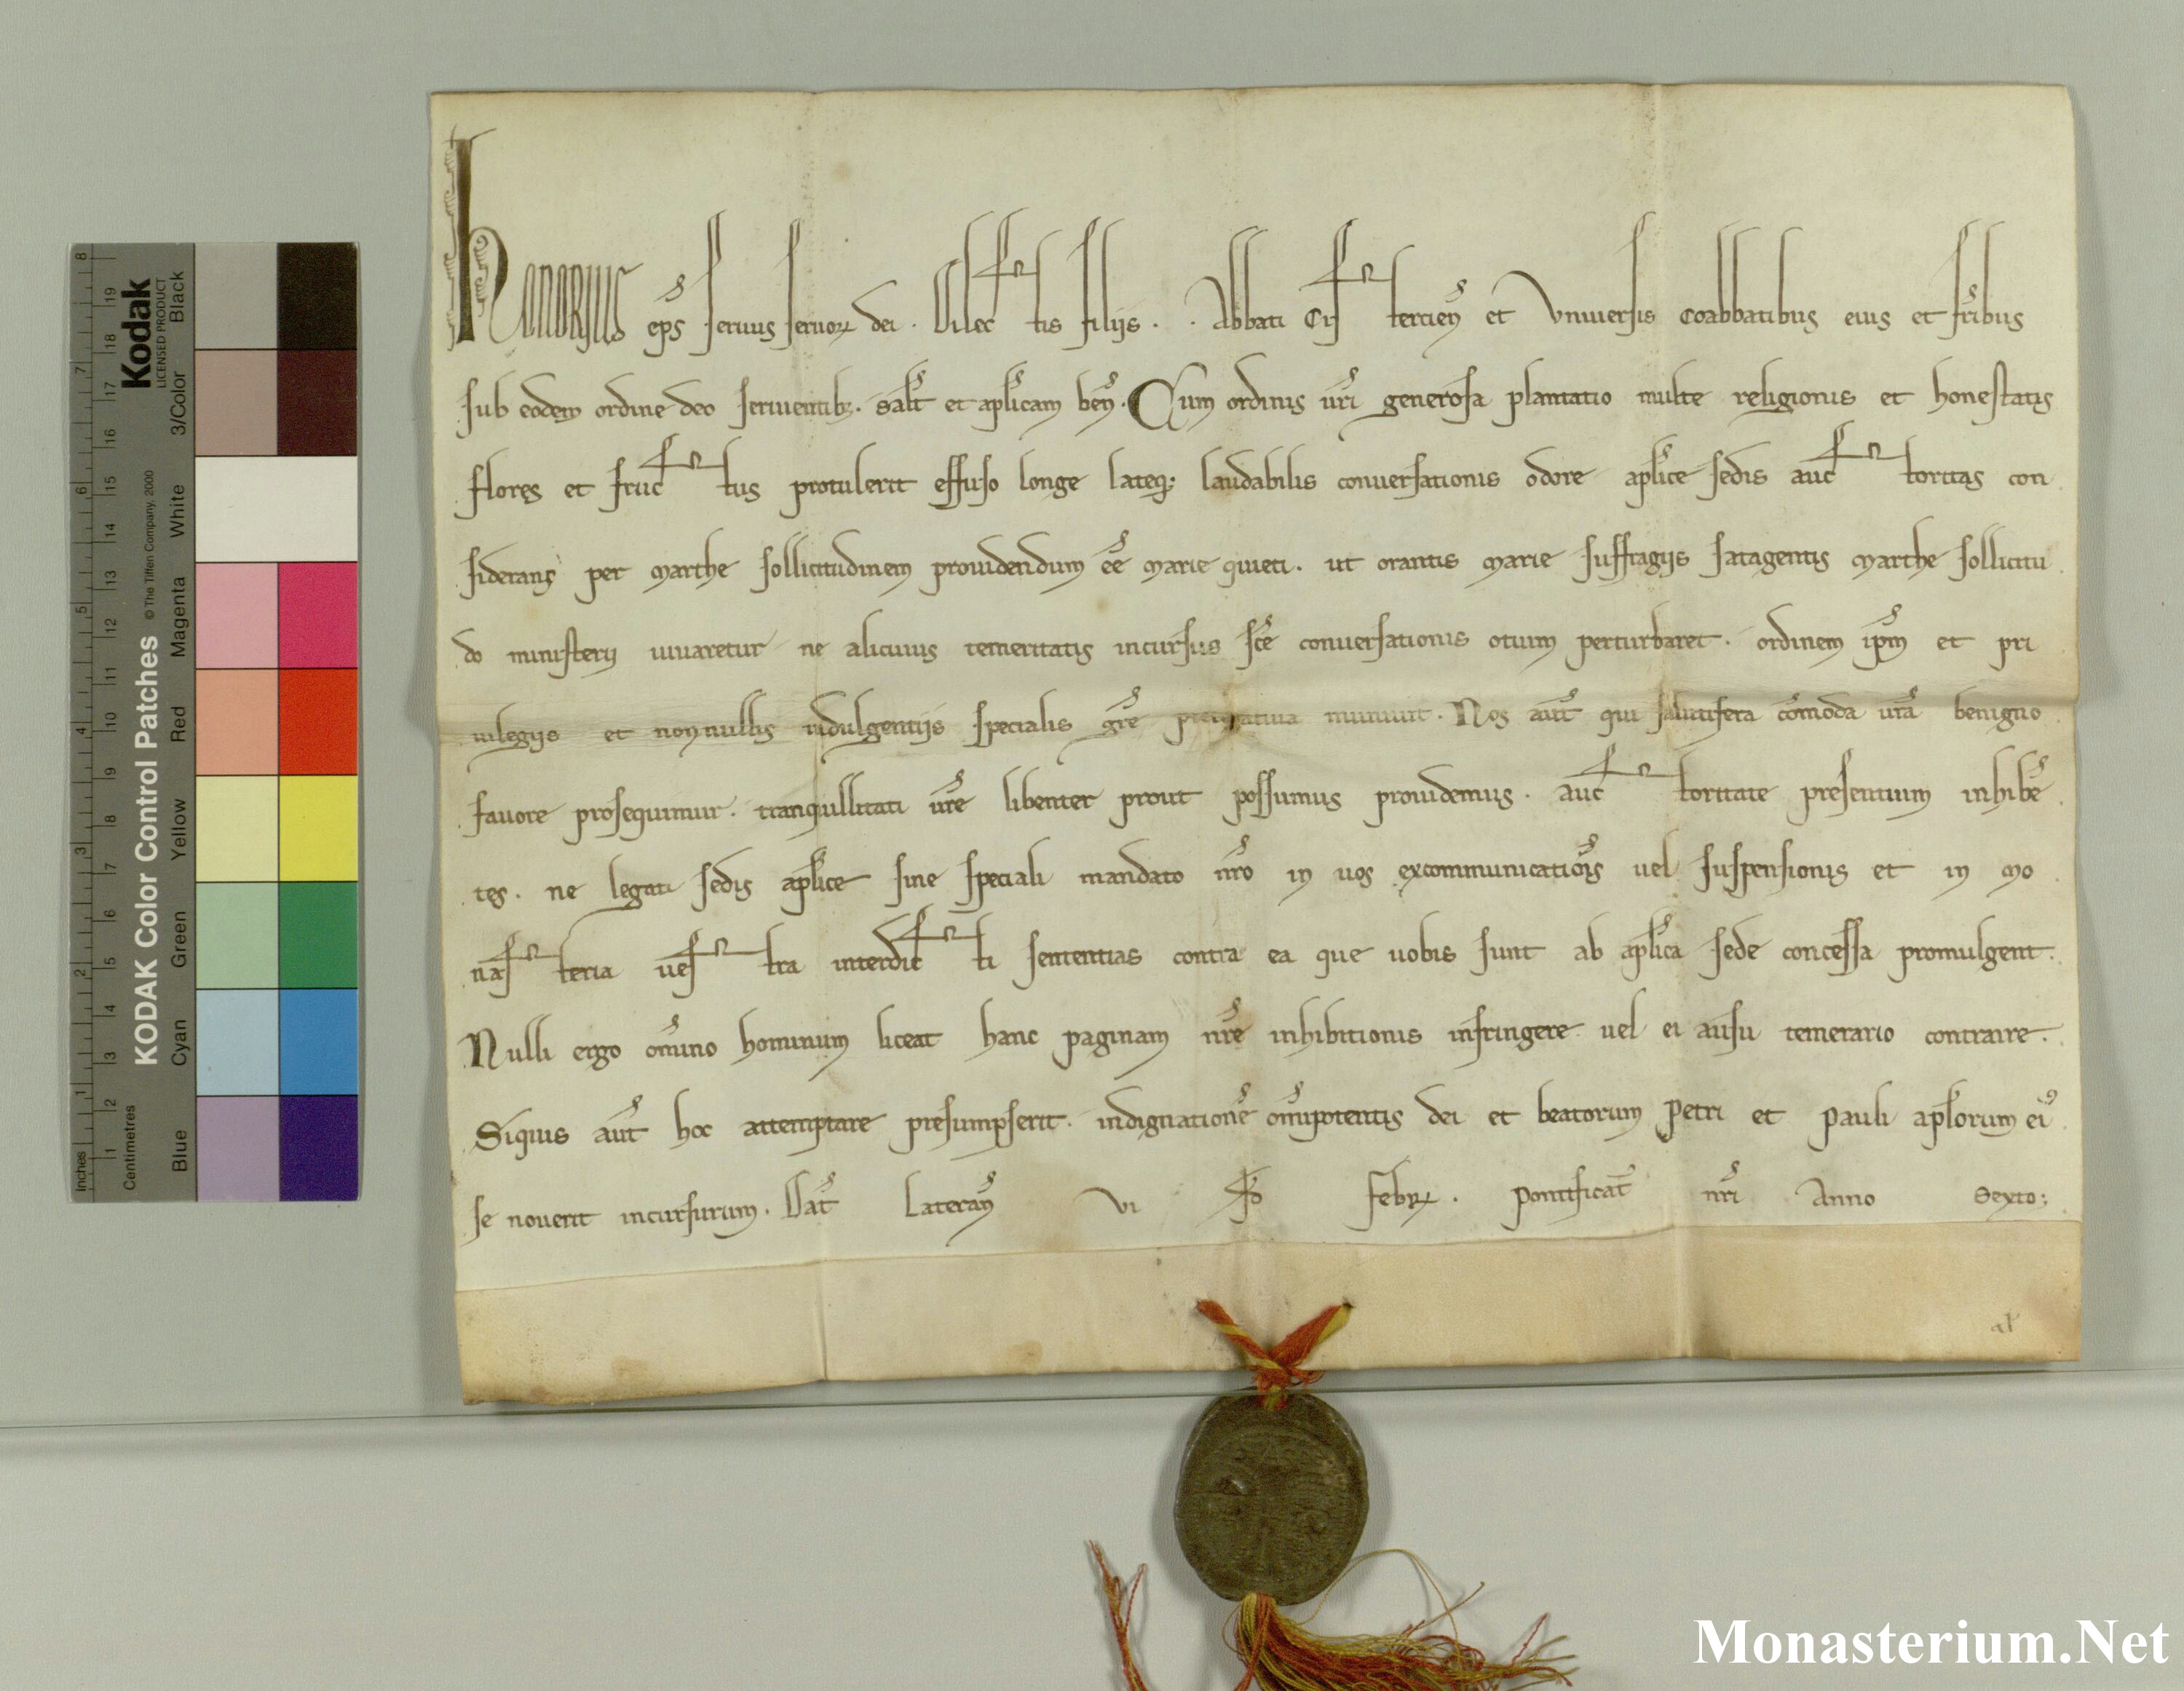 Honorius eps seruus seruorꝝ dei . Dilectis filijs . . Abbati Cistercien et Vniuersis coabbatibus eius et fribus
sub eodem ordine deo seruientibꝫ . salt et aplicam ben . Cum ordinis uri generosa plantatio multe religionis et honestatis
flores et fructus protulerit effuso longe lateqꝫ laudabilis conuersationis odore aplice sedis auctoritas con
siderans per marthe sollicitudinem prouidendum ee marie quieti . ut orantis marie suffragijs satagentis marthe sollicitu
do ministerij iuuaretur ne alicuius temeritatis incursus sce conuersationis otium perturbaret . ordinem ipm et pri
uilegijs et nonnullis indulgentijs specialis gre prerogatiua muniuit . Nos aut qui salutifera comoda ura benigno
fauore prosequimur . tranquillitati ure libenter prout possumus prouidemus . auctoritate presentium inhibe
tes . ne legati sedis aplice sine speciali mandato nro in uos excommunicatiois uel suspensionis et in mo
nasteria uestra interdicti sententias contra ea que uobis sunt ab aplica sede concessa promulgent .
Nulli ergo omino hominum liceat hanc paginam nre inhibitionis infringere uel ei ausu temerario contraire .
Siquis aut hoc attemptare presumpserit . indignatione omipotentis dei et beatorum Petri et Pauli aplorum eiꝰ
se nouerit incursurum . Dat Lateran VI Id Febrꝝ . Pontificat nri Anno Sexto ;
Kodak
LICENSED PRODUCT
KODAK Color Control Patches © The Tiffen Company, 2000
Blue Cyan Green Yellow Red Magenta White 3/Color Black
Inches 1 2 3 4 5 6 7 8
Centimetres 1 2 3 4 5 6 7 8 9 10 11 12 13 14 15 16 17 18 19
Monasterium.Net